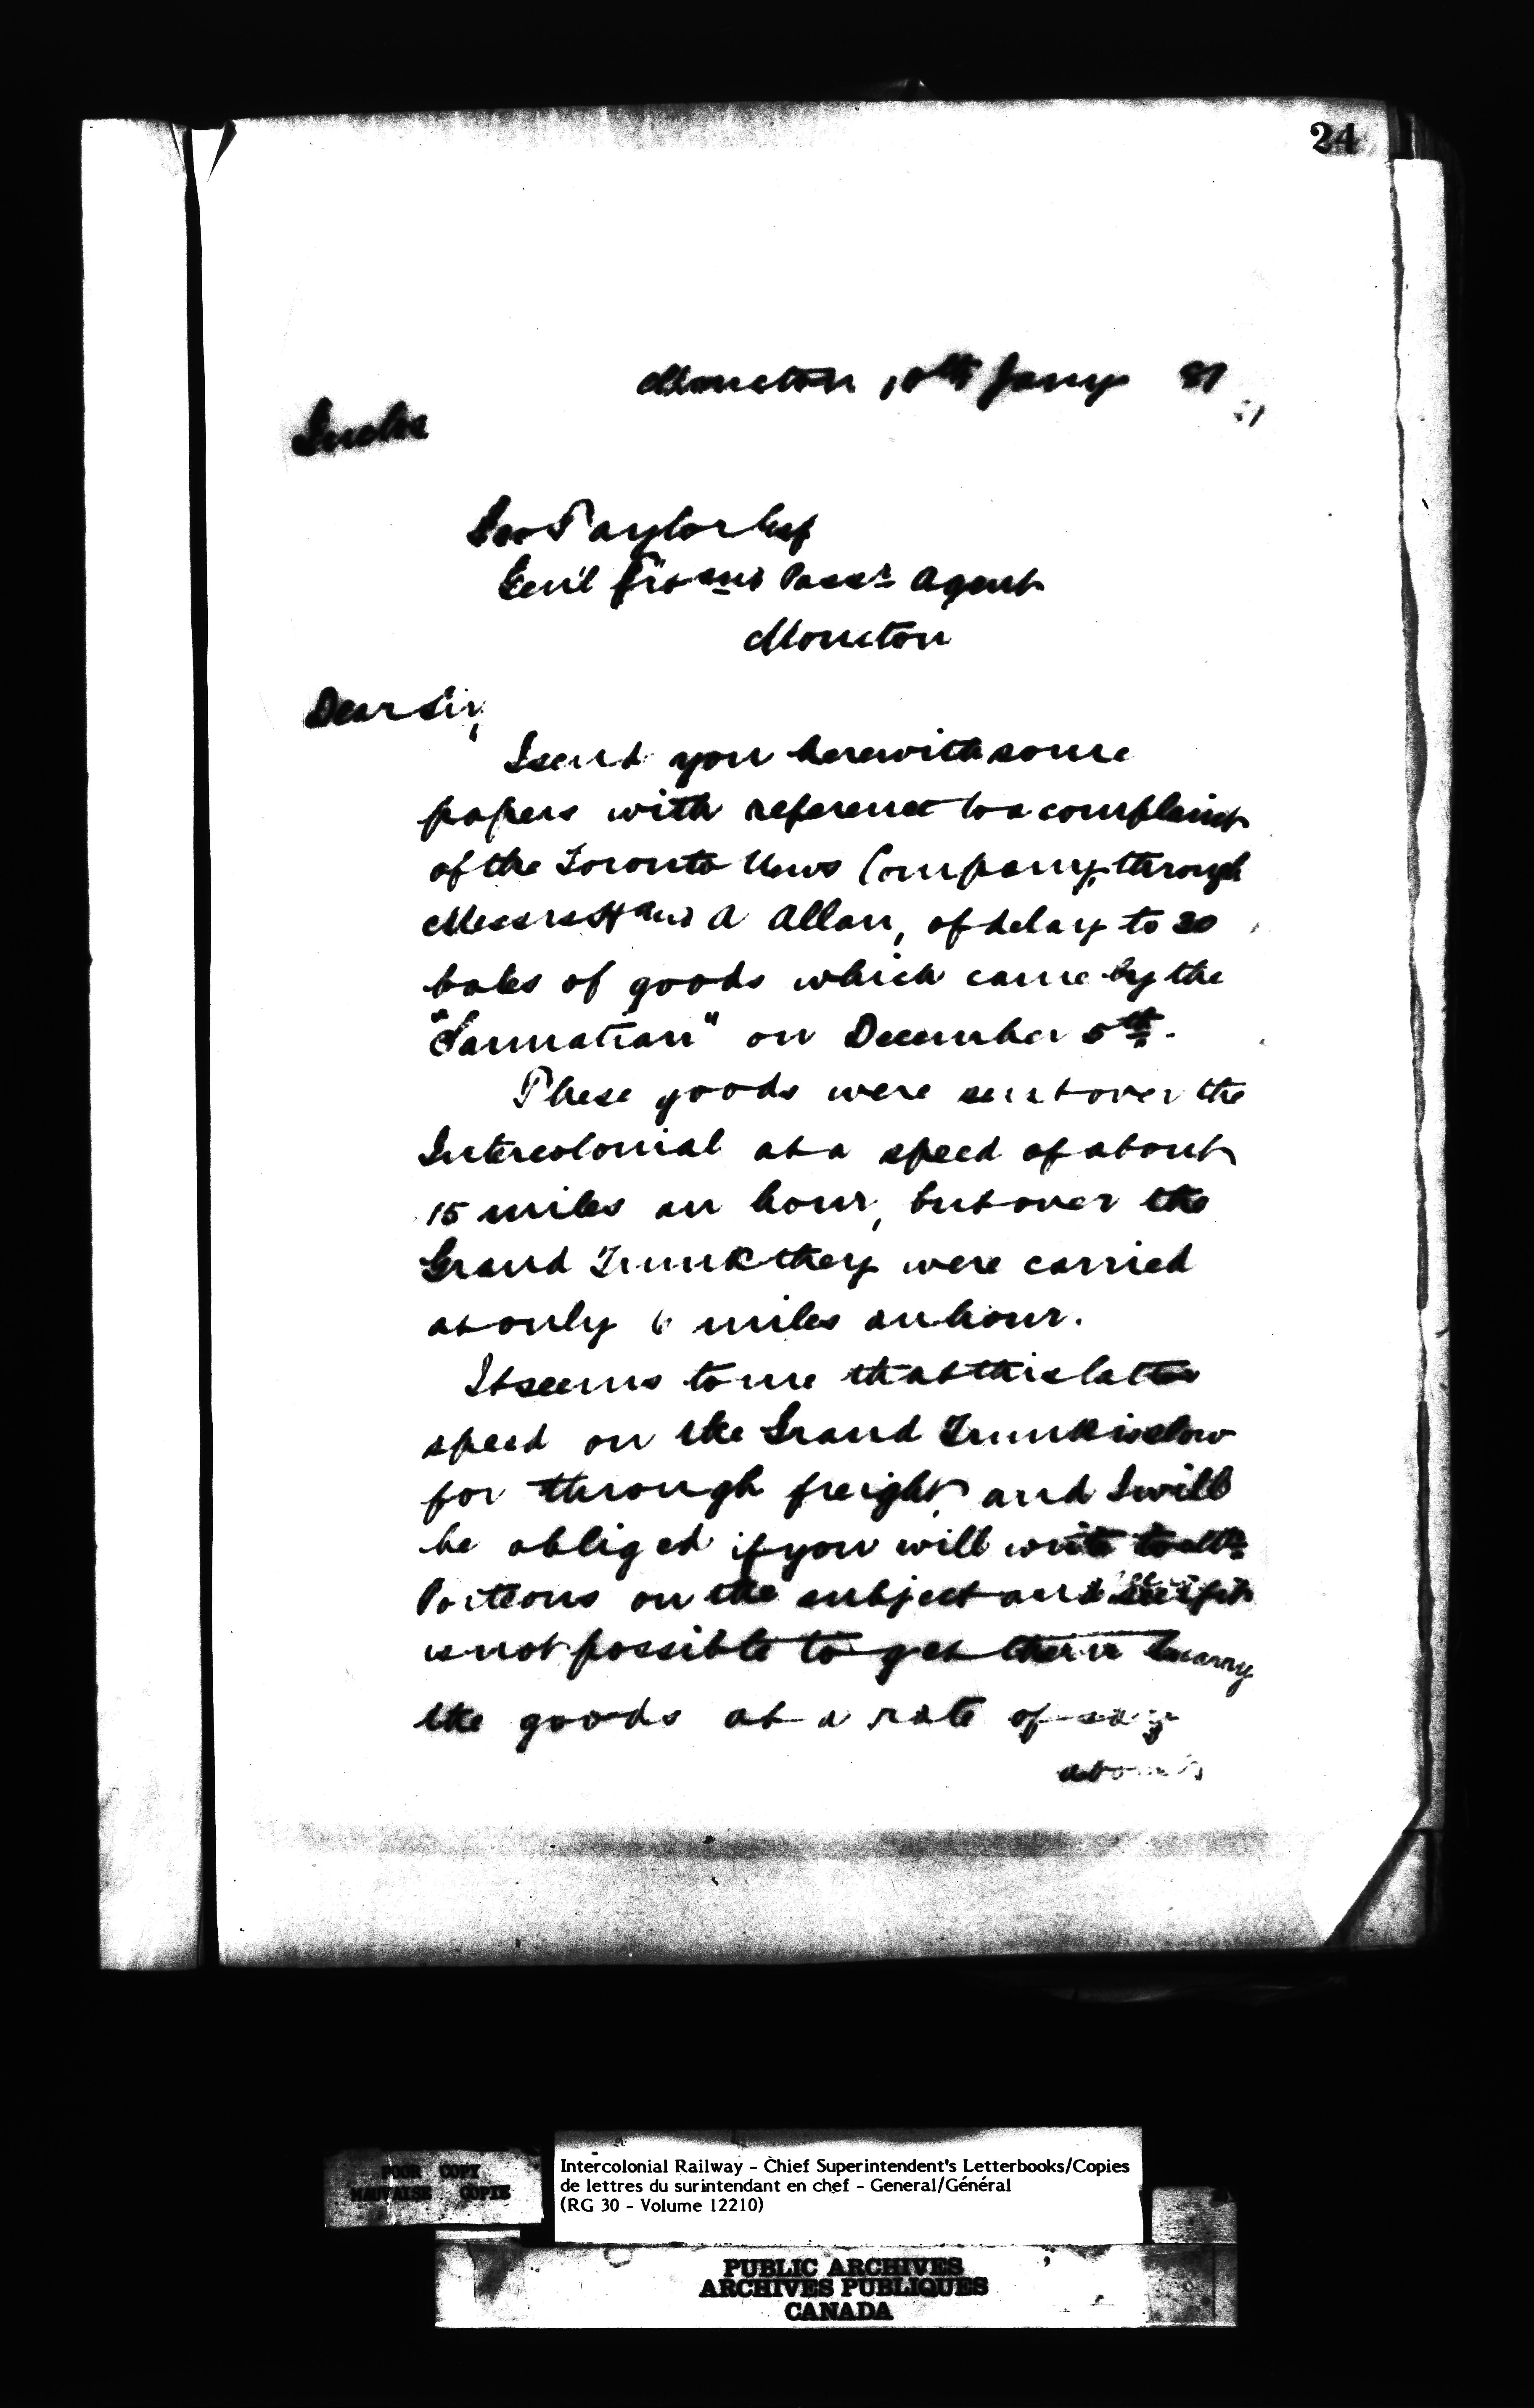 24
Moncton 10th Jany 81
Inclos
Geo Taylor Esq
Gen'l Frt and Passr Agent
Moncton
Dear Sir,
I send you herewith some
papers with reference to a complaint
of the Toronto News Company, through
Messrs H and A Allan, of delay to 20
bales of goods which came by the
"Sarmatian" on December 5th.
These goods were sent over the
Intercolonial at a speed of about
15 miles an hour, but over the
Grand Trunk they were carried
at only 6 miles an hour.
It seems to me that this latter
speed on the Grand Trunk is slow
for through freight, and I will
be obliged if you will write to Mr
Porteous on the subject and see if it
is not possible to get them to carry
the goods at a rate of say
about
POOR COPY
MAUVAISE COPIE
Intercolonial Railway - Chief Superintendent's Letterbooks/Copies
de lettres du surintendant en chef - General/Général
(RG 30 - Volume 12210)
PUBLIC ARCHIVES
ARCHIVES PUBLIQUES
CANADA